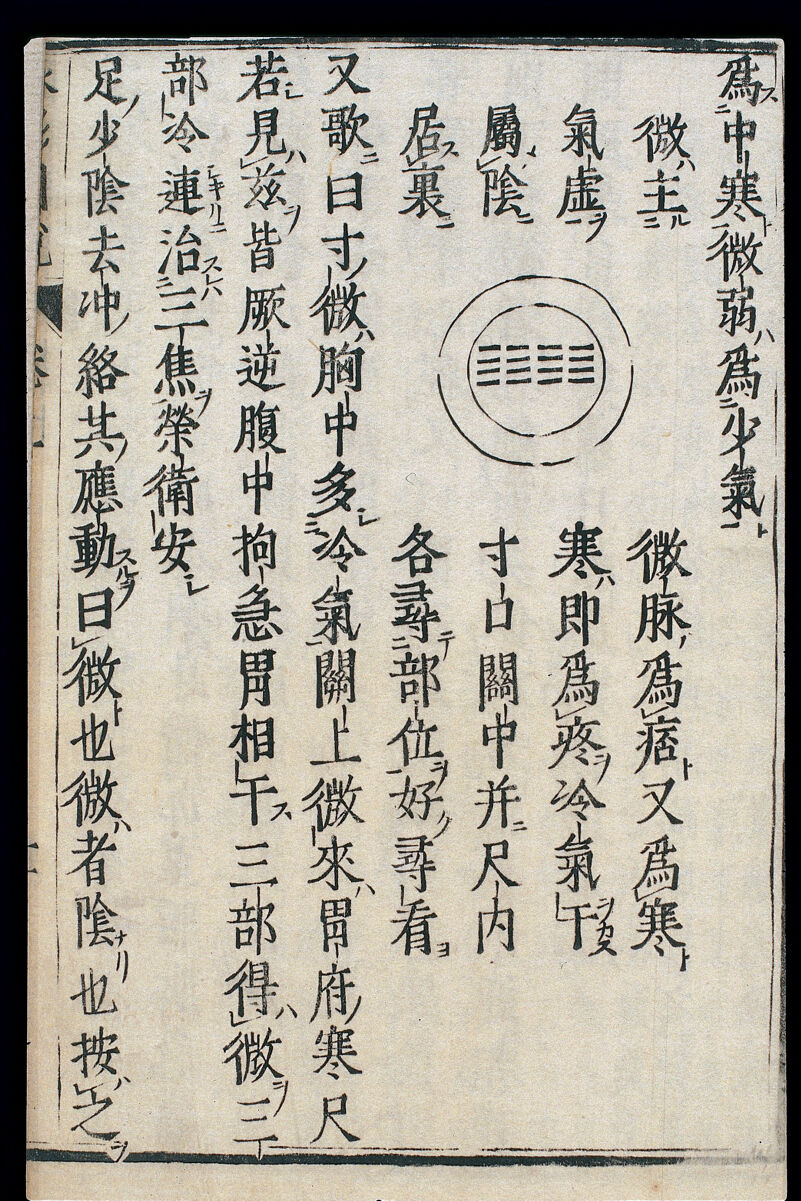 爲中寒微弱爲少氣
微主
氣虛
屬陰
居裏
微脉爲痞又爲寒
寒即爲疼冷氣干
寸口關中并尺内
各尋部位好尋看
又歌曰寸微胸中多冷氣關上微來胃府寒尺
若見兹皆厥逆腹中拘急胃相干三部得微三
部冷連治三焦榮衛安
足少陰去冲絡其應動曰微也微者陰也按之